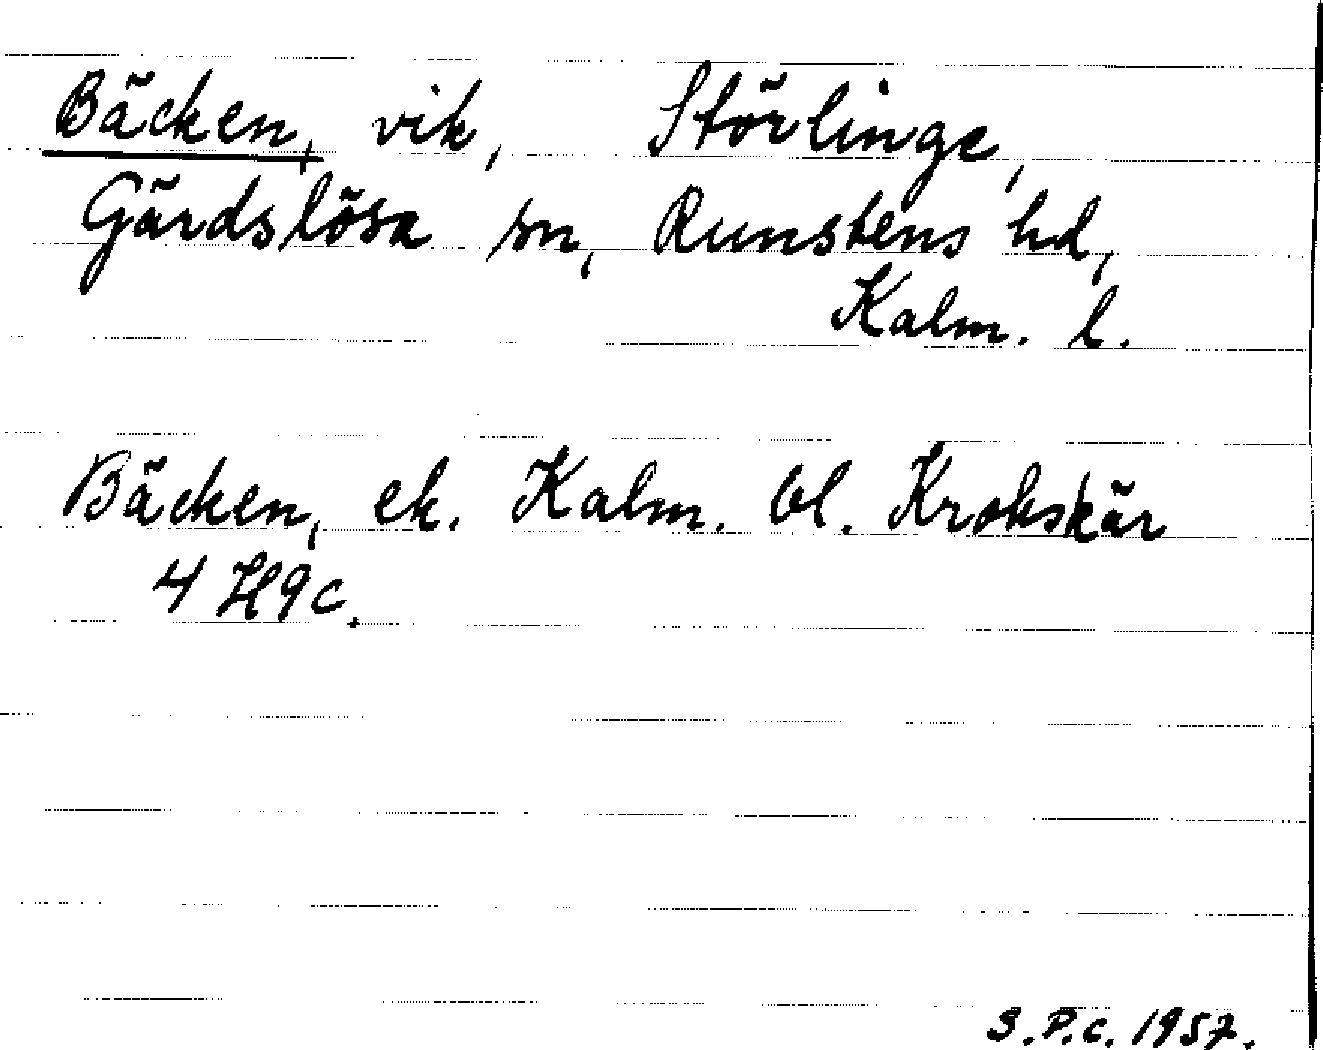 Bäcken, vik, Störlinge,
Gärdslösa sn, Runstens hd,
Kalm. l.
Bäcken, ek. Kalm. bl. Krokskär
4 H9c.
S.P.C. 1957.